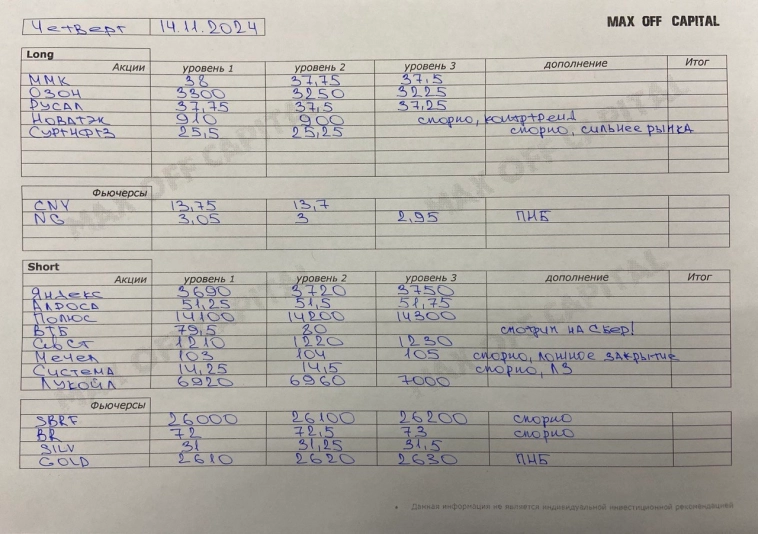 Четверг 14.11.2024 MAX OFF CAPITAL
Long
Акции уровень 1 уровень 2 уровень 3 дополнение Итог
ММК 38 37,75 37,5
ОЗОН 3300 3250 3225
РУСАЛ 37,75 37,5 37,25
НОВАТЭК 910 900 спорно, контртренд
СУРГНФГЗ 25,5 25,25 спорно, сильнее рынка
Фьючерсы
CNY 13,75 13,7
NG 3,05 3 2,95 ПНБ
Short
Акции уровень 1 уровень 2 уровень 3 дополнение Итог
Яндекс 3690 3720 3750
АЛРОСА 51,25 51,5 51,75
Полюс 14100 14200 14300
ВТБ 79,5 80 смотрим на Сбер!
СевСт 1210 1220 1230
Мечел 103 104 105 спорно, ложное закрытие
Система 14,25 14,5 спорно, ЛЗ
Лукойл 6920 6960 7000
Фьючерсы
SBRF 26000 26100 26200 спорно
BR 72 72,5 73 спорно
SILV 31 31,25 31,5
GOLD 2610 2620 2630 ПНБ
MAX OFF CAPITAL
MAX OFF CAPITAL
MAX OFF CAPITAL
MAX OFF CAPITAL
Данная информация не является индивидуальной инвестиционной рекомендацией